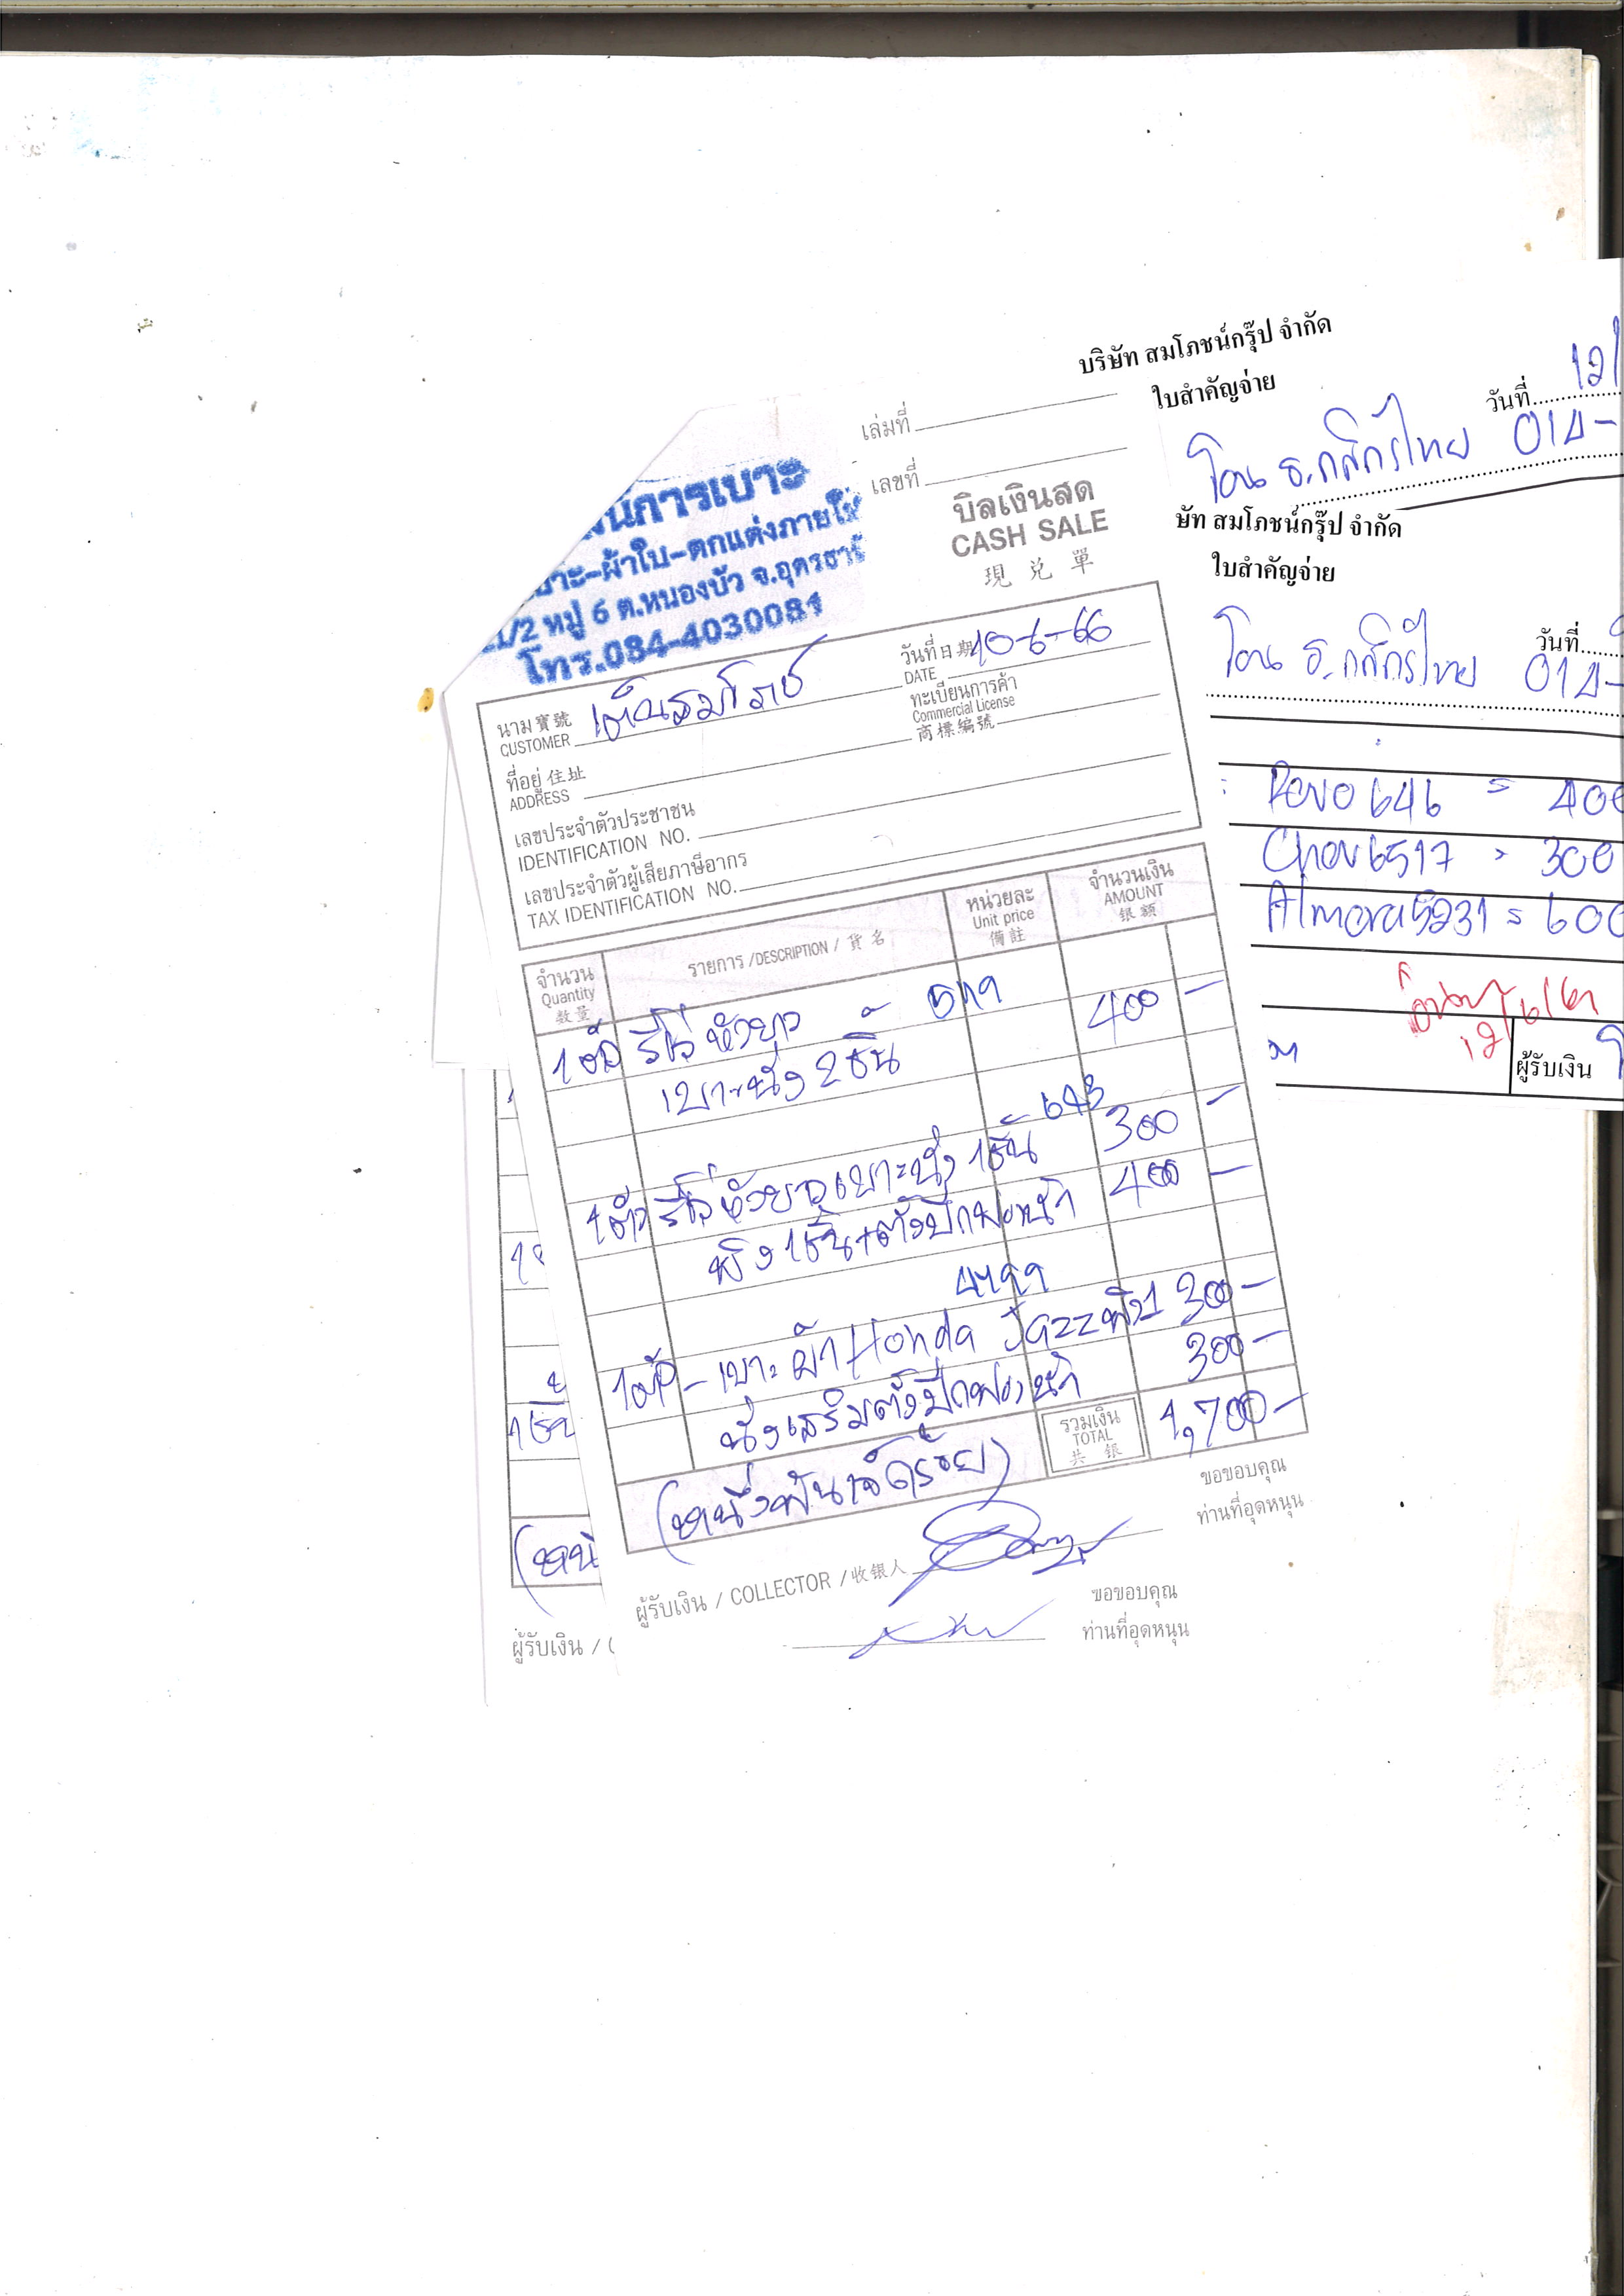 บริษัท สมโภชน์กรุ๊ป จำกัด
ใบสำคัญจ่าย
วันที่ 12/
โอน ธ.กสิกรไทย 014-
ษัท สมโภชน์กรุ๊ป จำกัด
ใบสำคัญจ่าย
วันที่
โอน ธ.กสิกรไทย 014-
Revo 646 = 400
Chev 6517 = 300
Almera 5231 = 600
12/6/67
ผู้รับเงิน
เล่มที่
เลขที่
บิลเงินสด
CASH SALE
現 兌 單
นันการเบาะ
บาะ-ผ้าใบ-ตกแต่งภายใน
1/2 หมู่ 6 ต.หนองบัว จ.อุดรธานี
โทร.084-4030081
นาม 寶號 วันที่ 日期 10-6-66
CUSTOMER เต็นสมโภช DATE
ทะเบียนการค้า
Commercial License
商標編號
ที่อยู่ 住址
ADDRESS
เลขประจำตัวประชาชน
IDENTIFICATION NO.
เลขประจำตัวผู้เสียภาษีอากร
TAX IDENTIFICATION NO.
จำนวน
Quantity
數量
รายการ /DESCRIPTION / 貨 名
หน่วยละ
Unit price
備註
จำนวนเงิน
AMOUNT
銀 額
1 ตัว รีโว่ หัวยาว 400 -
เบาะนั่ง 2 ชิ้น
643
1 ตัว รีโว่ หัวยาว เบาะนั่ง 1 ชิ้น 300 -
พิง 1 ชิ้น + ตัวปีกฟองน้ำ 400 -
4799
1 ตัว - เบาะผ้า Honda Jazz พิง 1 300 -
นั่งเสริมตัวปีกฟองน้ำ 300 -
(หนึ่งพันเจ็ดร้อย)
รวมเงิน
TOTAL
共 銀
1,700 -
ขอขอบคุณ
ท่านที่อุดหนุน
ผู้รับเงิน / COLLECTOR / 收银人
ขอขอบคุณ
ท่านที่อุดหนุน
(หนึ
ผู้รับเงิน / (